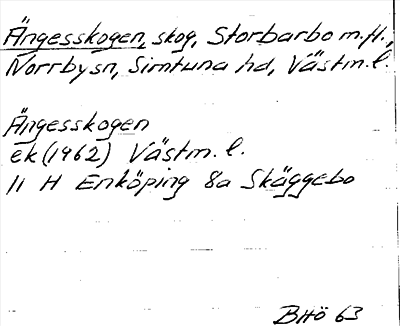 Ängesskogen, skog, Storbarbo m.fl.,
Norrby sn, Simtuna hd, Västm. l.
Ängesskogen
ek (1962) Västm. l.
11 H Enköping 8a Skäggebo
BHö 63